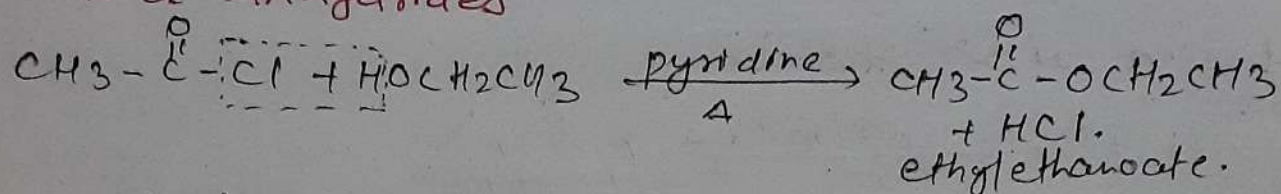 O O
CH3-C-Cl + HOCH2CH3 pyridine CH3-C-OCH2CH3
Δ + HCl.
ethylethanoate.